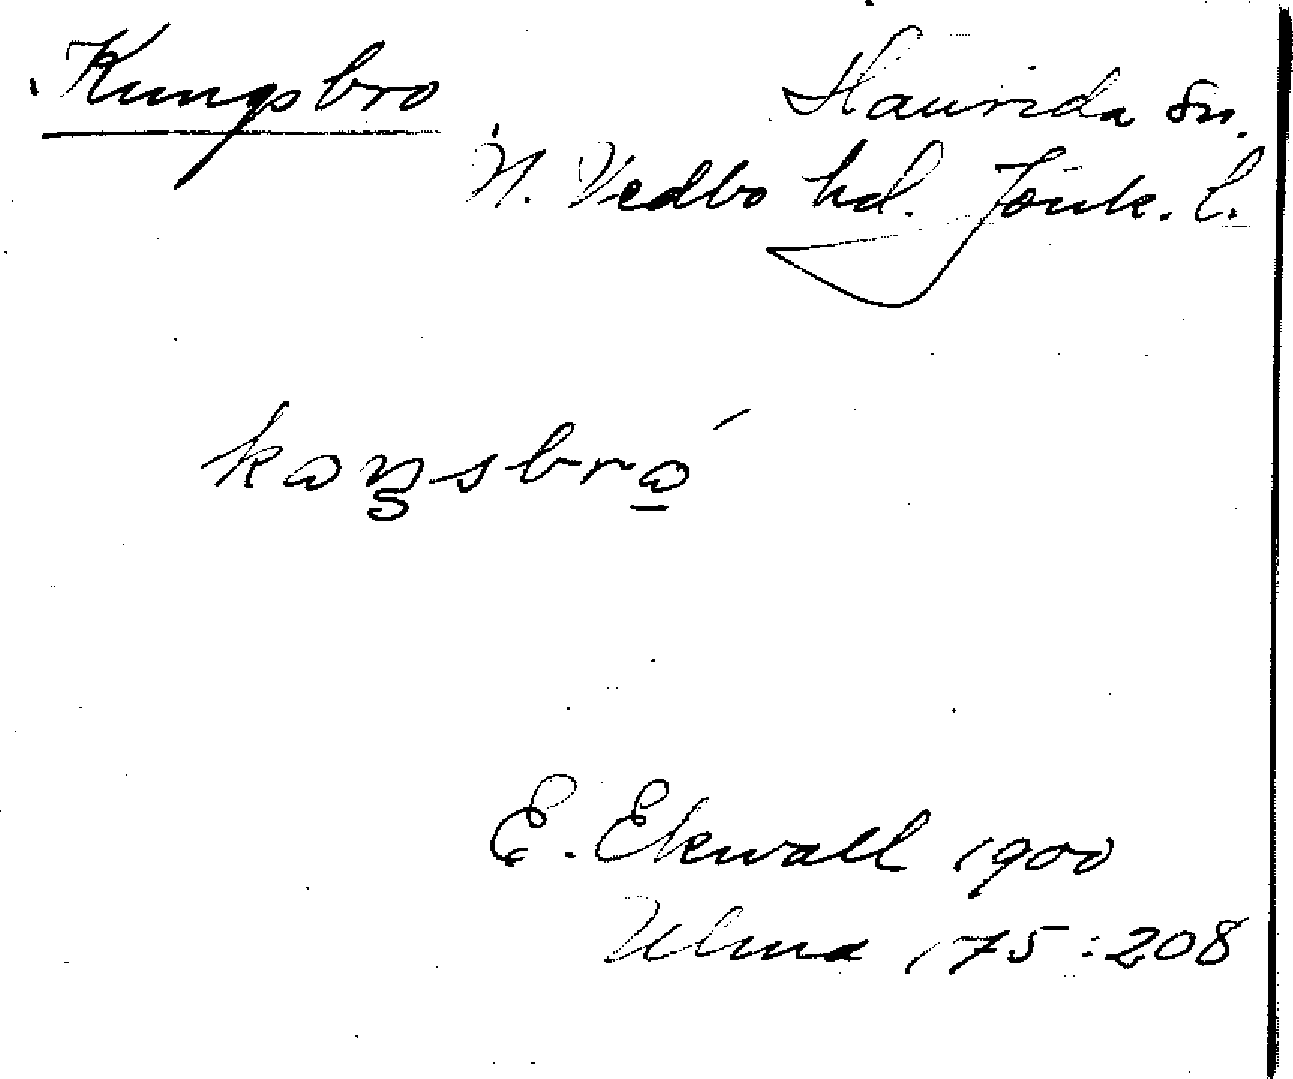 Kungsbro Haurida sn.
N. Vedbo hd. Jönk. l.
kaŋsbrò̱́
E. Ekwall 1900
Ulma 175:208